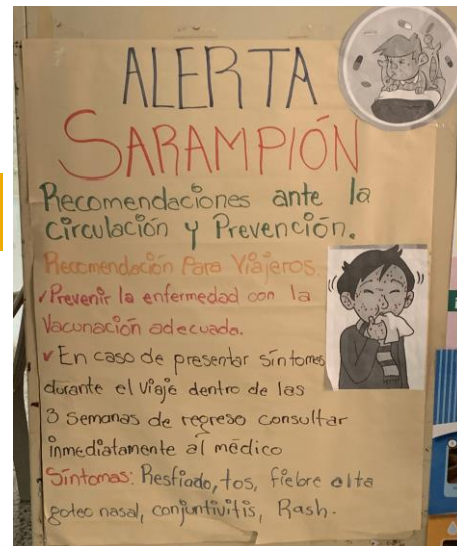 ALERTA
SARAMPIÓN
Recomendaciones ante la
Circulación y Prevención.
Recomendación Para Viajeros.
✓Prevenir la enfermedad con la
Vacunación adecuada.
✓En caso de presentar síntomas
durante el viaje dentro de las
3 semanas de regreso consultar
inmediatamente al médico
Síntomas: Resfiado, tos, fiebre alta
goteo nasal, conjuntivitis, Rash.